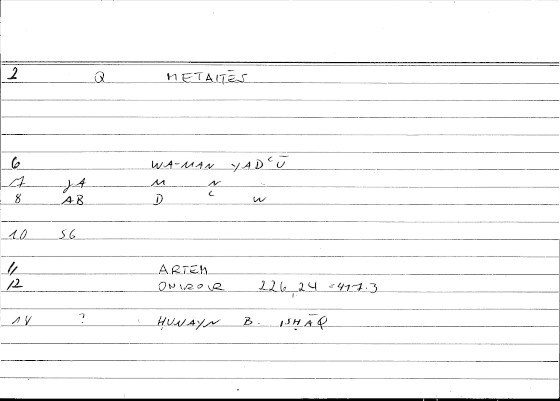 2 Q METAITĒS
6 WA-MAN YADʿŪ
7 JA M N
8 AB D ʿ W
10 SG
11 ARTEM
12 ONIROCR 226,24 = 417.3
14 ? ḤUNAYN B. ISḤĀQ